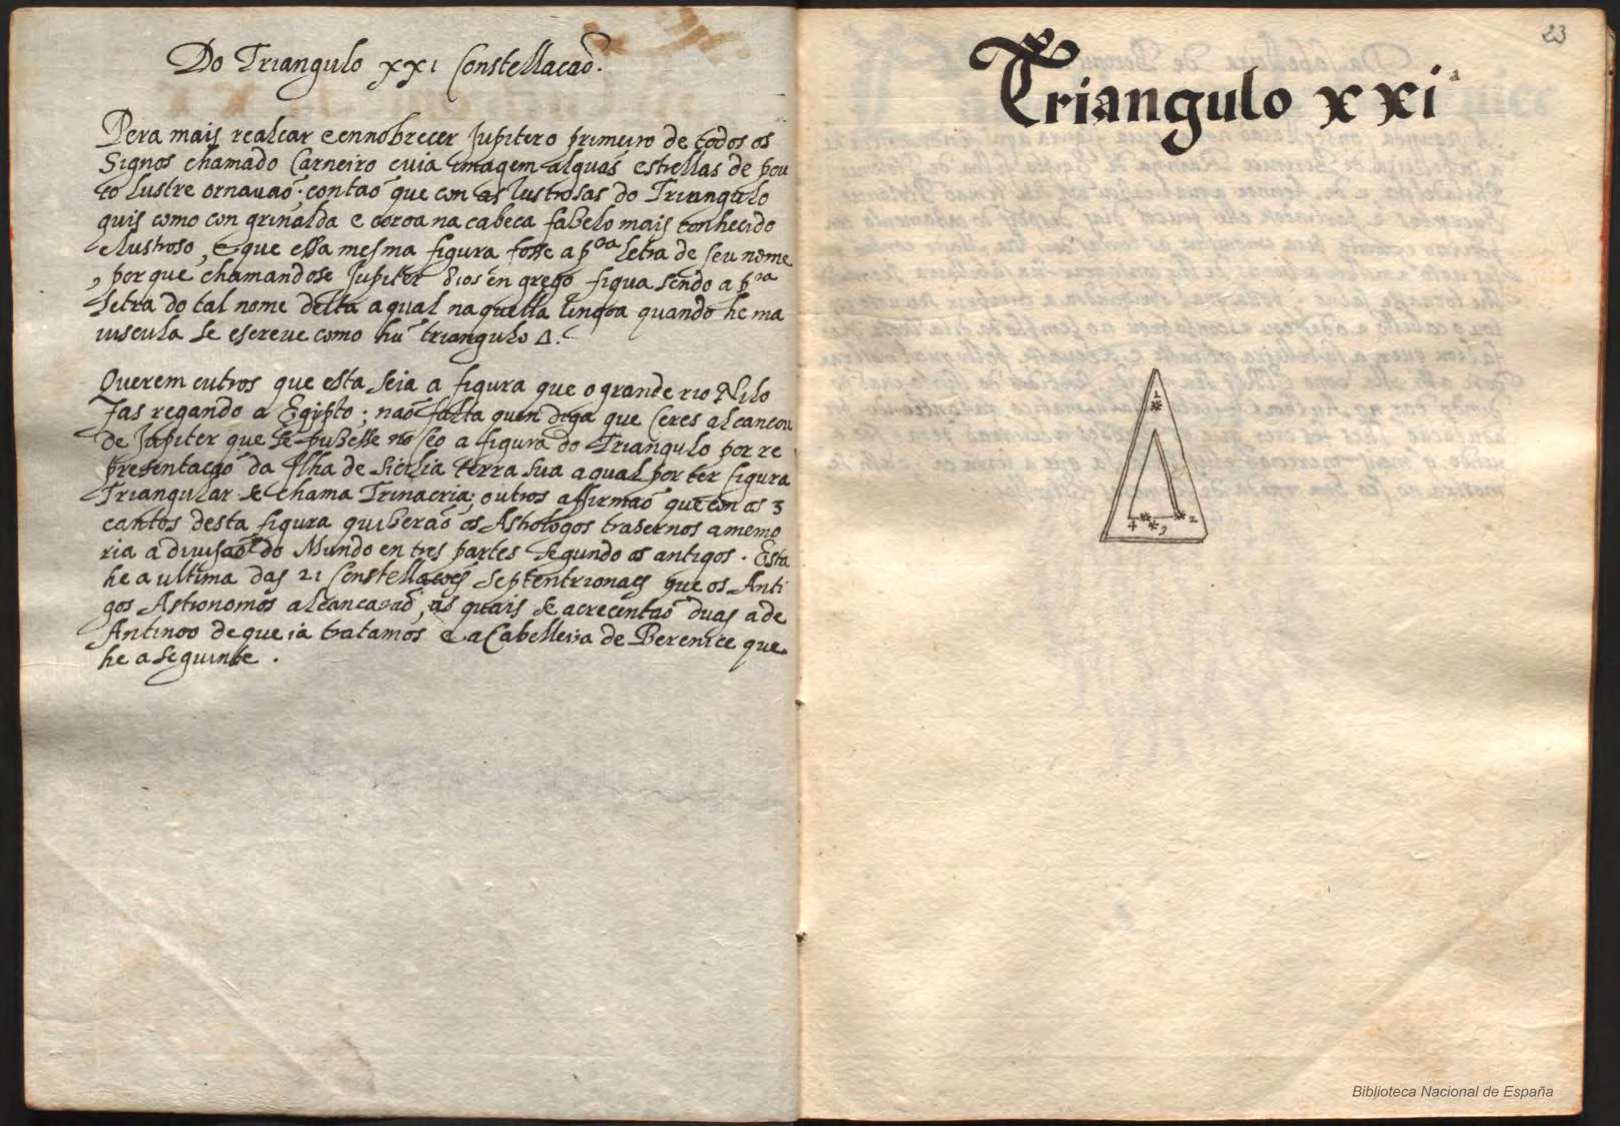 Do Triangulo xxi Constellacaõ.
Pera mais realcar e ennobrecer Jupiter o primeiro de todos os
Signos chamado Carneiro cuia imagem alguãs estrellas de pou
co lustre ornauaõ; contaõ que con as lustrosas do Triangulo
quis como con grinalda e coroa na cabeca fazelo mais conhecido
e lustroso, e que essa mesma figura fosse a pra letra de seu nome
, porque chamandose Jupiter dios en grego figua sendo a pra
letra do tal nome delta a qual naquella lingoa quando he ma
iuscula se escreue como hũ triangulo Δ.
Querem outros que esta seia a figura que o grande rio Nilo
fas regando a Egipto; naõ falta quen diga que Ceres alcancou
de Jupiter que se pusesse no seo a figura do Triangulo por re
presentacaõ da Ilha de Sicilia terra sua a qual por ter figura
Triangular se chama Trinacria; outros affirmaõ que con as 3
cantos desta figura quiseraõ os Astrologos trasernos a memo
ria a diuisaõ do Mundo en tres partes segundo os antigos. Esta
he a ultima das 21 Constellacoẽs Septentrionaes que os Anti
gos Astronomos alcancaraõ, as quais se acrecentaõ duas a de
Antinoo de que ia tratamos e a Cabelleira de Berenice que
he a seguinte.
23
Triangulo xxi
1
4 3 2
Biblioteca Nacional de España